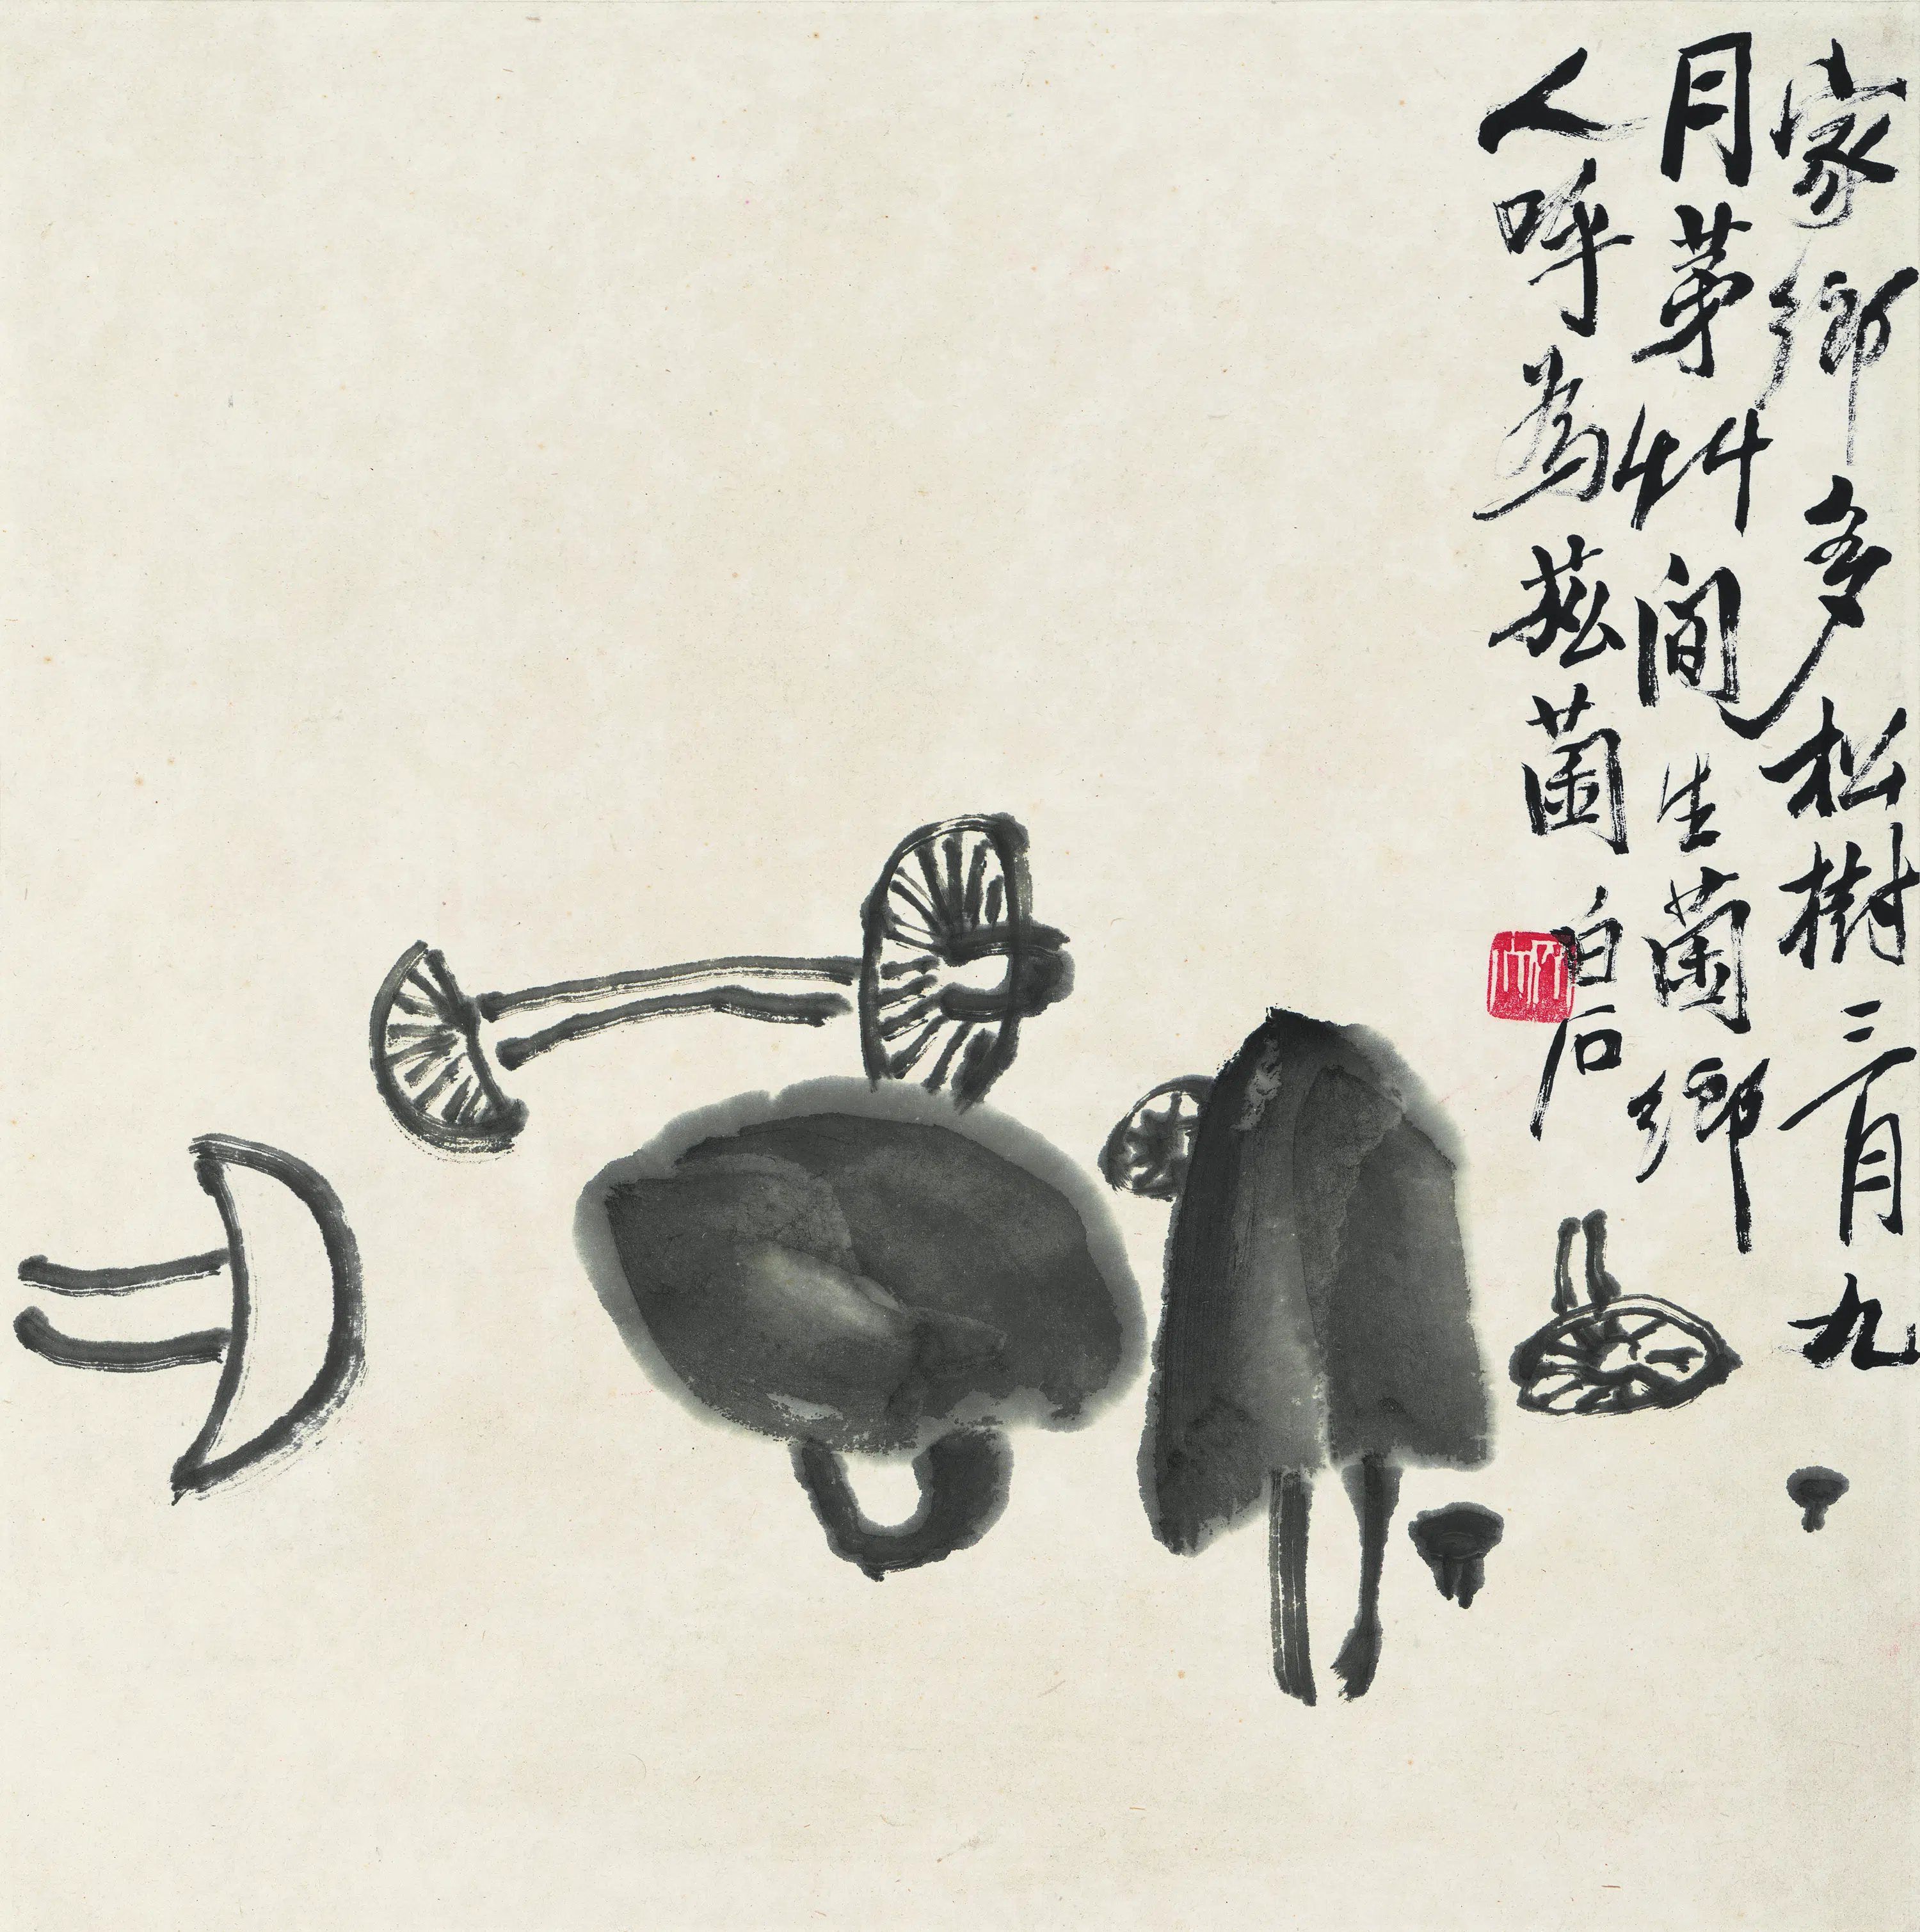 家鄉多松樹三月九
月茅艸間生菌鄉
人呼為菘菌 白石